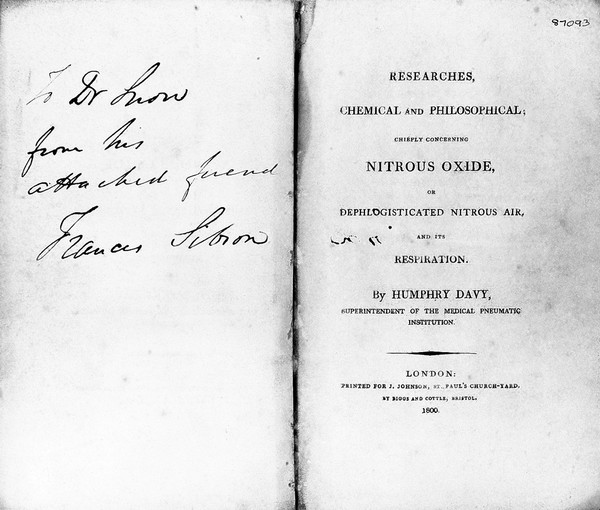 To Dr Snow
from his
attached friend
Francis Sibson
87093
RESEARCHES,
CHEMICAL AND PHILOSOPHICAL;
CHIEFLY CONCERNING
NITROUS OXIDE,
OR
DEPHLOGISTICATED NITROUS AIR,
AND ITS
RESPIRATION.
By HUMPHRY DAVY,
SUPERINTENDENT OF THE MEDICAL PNEUMATIC
INSTITUTION.
LONDON:
PRINTED FOR J. JOHNSON, ST. PAUL'S CHURCH-YARD.
BY BIGGS AND COTTLE, BRISTOL.
1800.